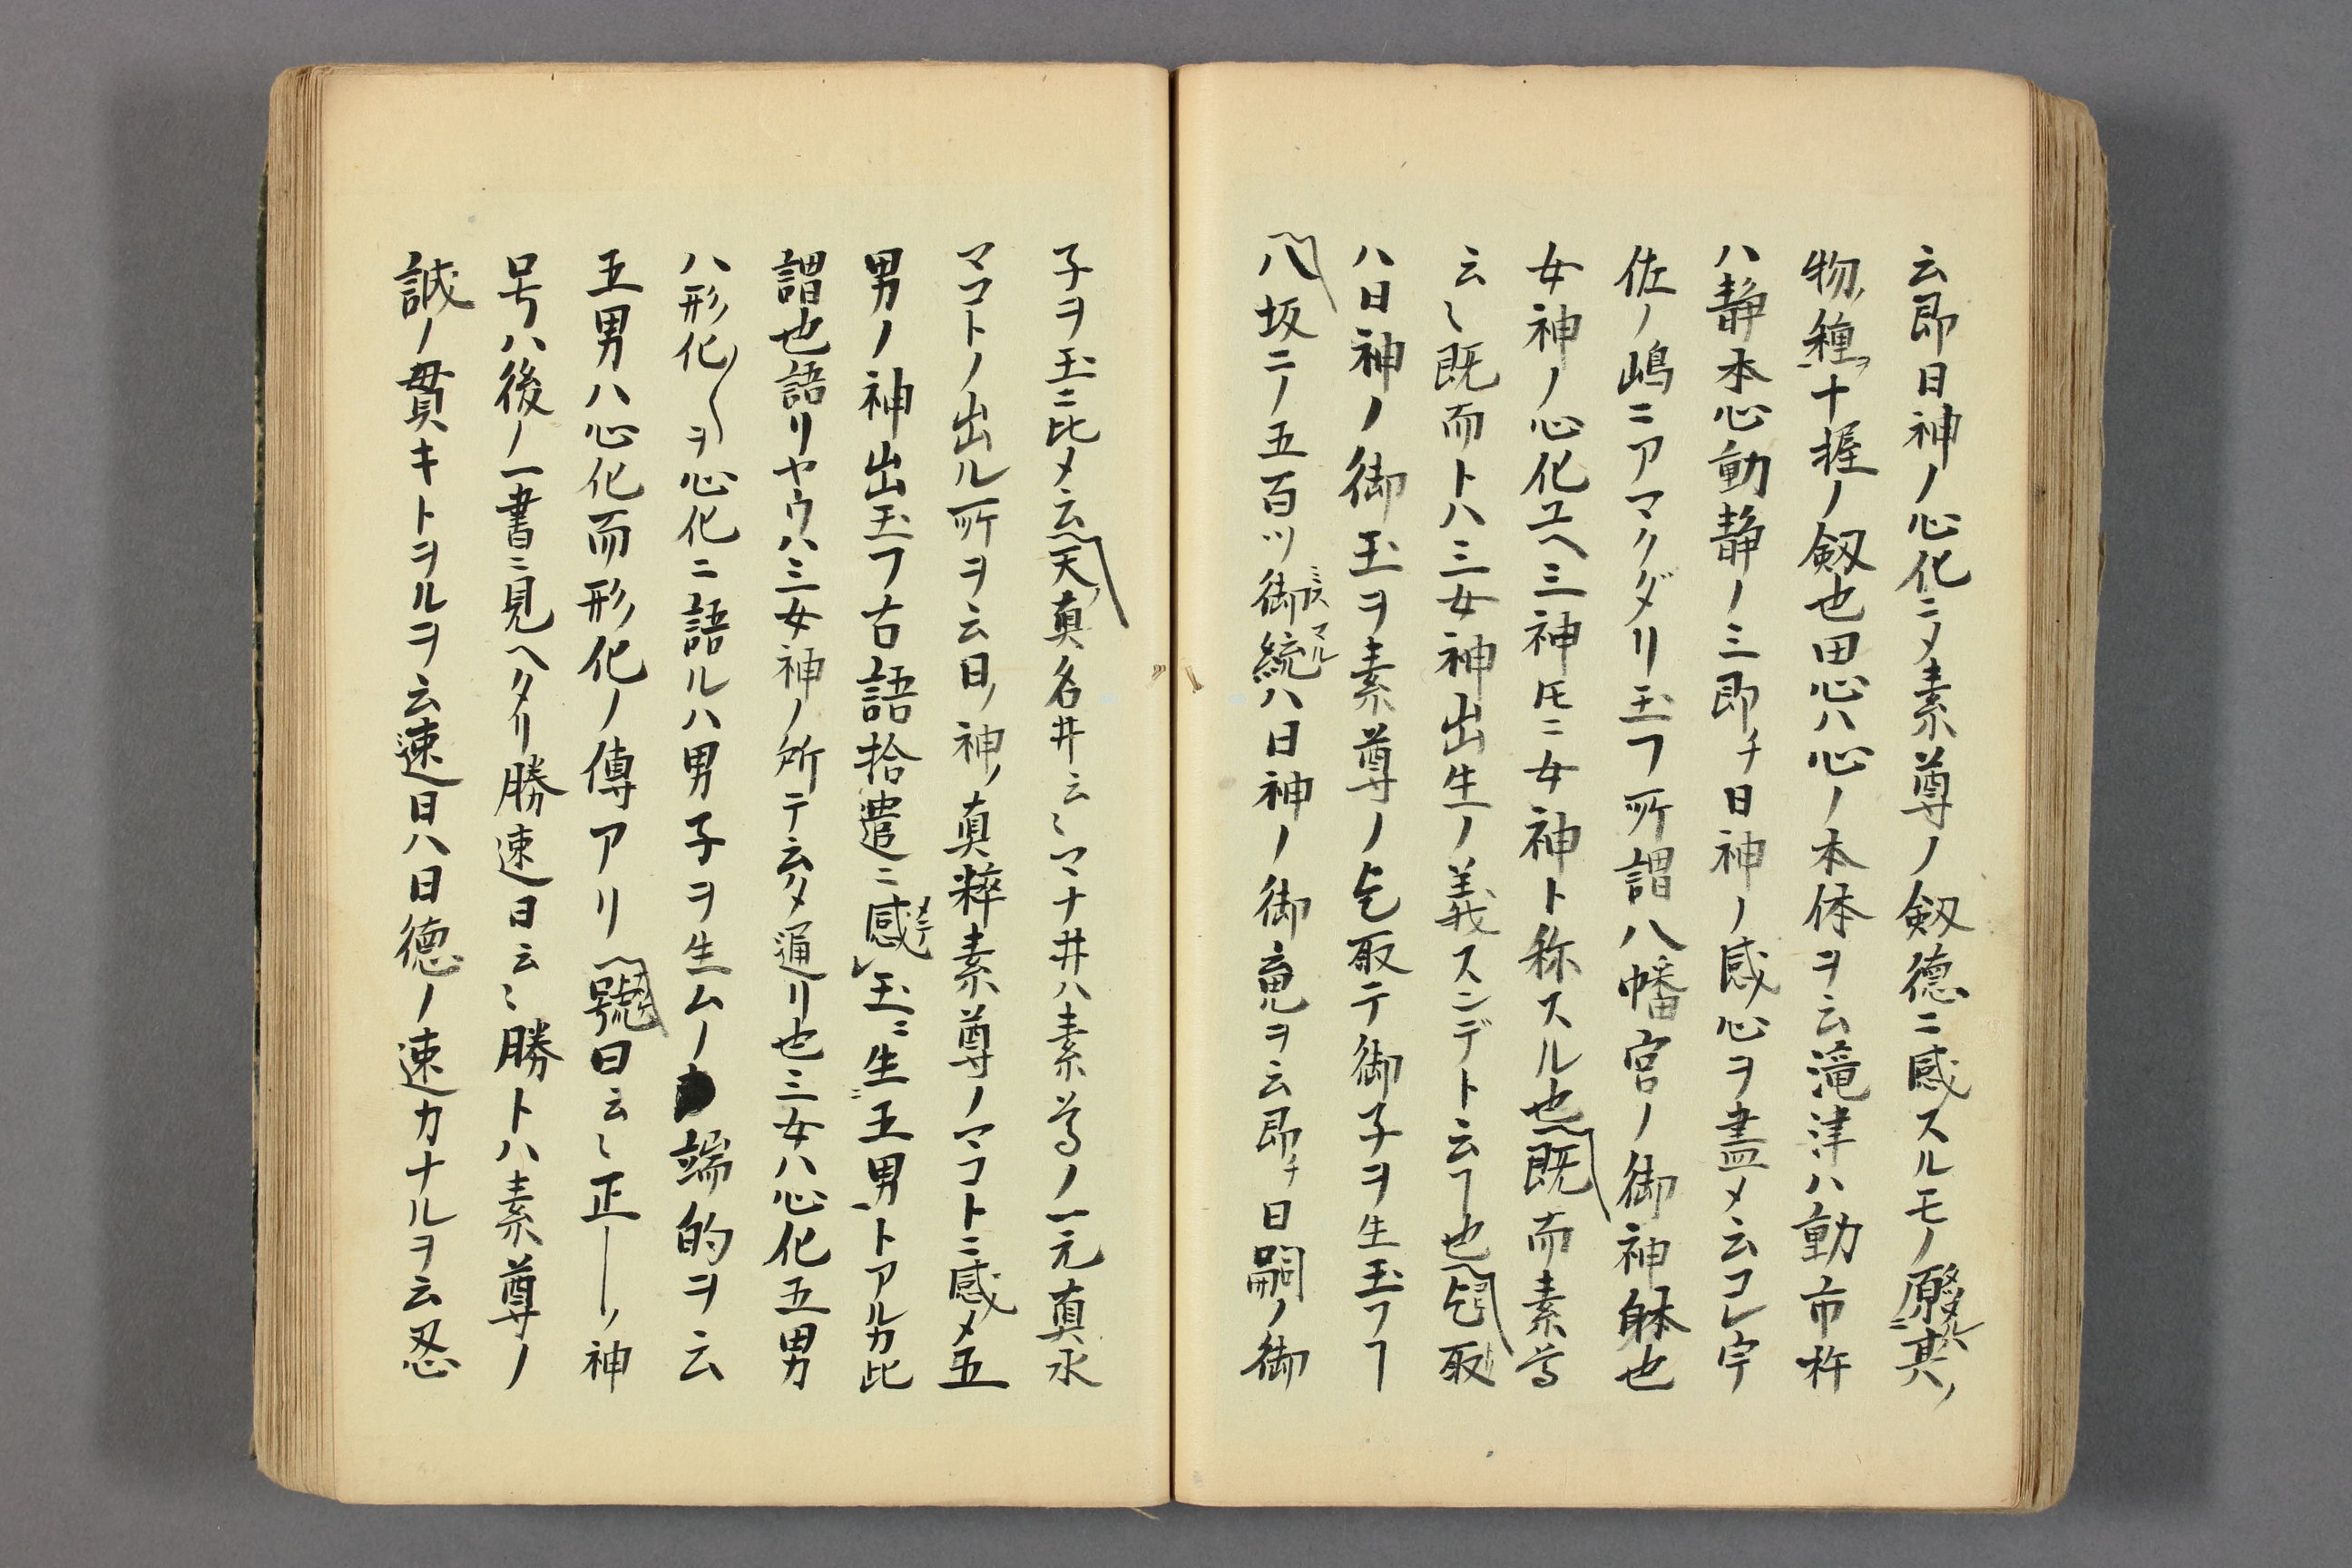 云即日神ノ心化ニ〆素尊ノ劔德ニ感スルモノ原其ノ
物種十握ノ劔也田心ハ心ノ本体ヲ云滝津ハ動市杵
ハ静本心動静ノ三即チ日神ノ感心ヲ盡〆云コレ宇
佐ノ嶋ニアマクダリ玉フ所謂八幡宮ノ御神躰也
女神ノ心化ユヘ三神𪜈ニ女神ト称スル也既而素尊
云〻既而トハ三女神出生ノ義スンデト云フ也乞取
ハ日神ノ御玉ヲ素尊ノ乞取テ御子ヲ生玉フヿ
八坂ニノ五百ツ御統ハ日神ノ御竟ヲ云即チ日嗣ノ御
子ヲ玉ニ比〆云天真名井云〻マナ井ハ素尊ノ一元真水
マコトノ出ル所ヲ云日ノ神ノ真粹素尊ノマコトニ感〆五
男ノ神出玉フ古語拾遺ニ感玉ニ生五男トアルカ此
謂也語リヤウハ三女神ノ所テ云タ通リ也三女ハ心化五男
ハ形化〱ヲ心化ニ語ルハ男子ヲ生ムノ端的ヲ云
五男ハ心化而形化ノ傳アリ號曰云〻正―ノ神
号ハ後ノ一書ニ見ヘタリ勝速日云〻勝トハ素尊ノ
誠ノ貫キトヲルヲ云速日ハ日德ノ速カナルヲ云忍